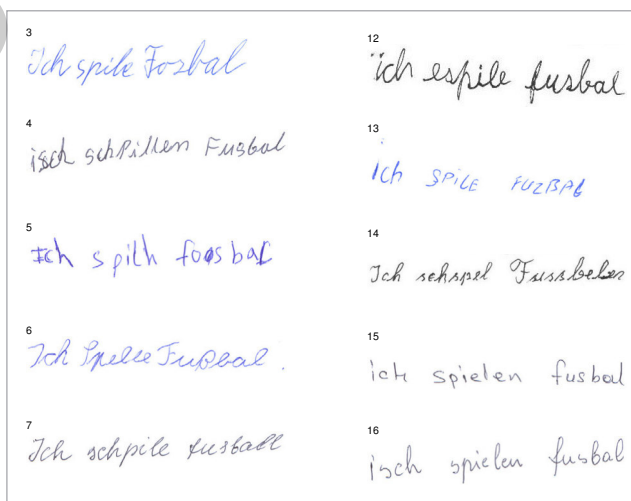 3
Ich spile Fozbal
4
isch schpillen Fusbal
5
Ich spilh foosbal
6
Ich Spelle Fußbal.
7
Ich schpile fusball
12
ich espile fusbal
13
Ich SPiLE FUZBAL
14
Ich schspel Fussbeler
15
ich spielen fusbal
16
isch spielen fusbal